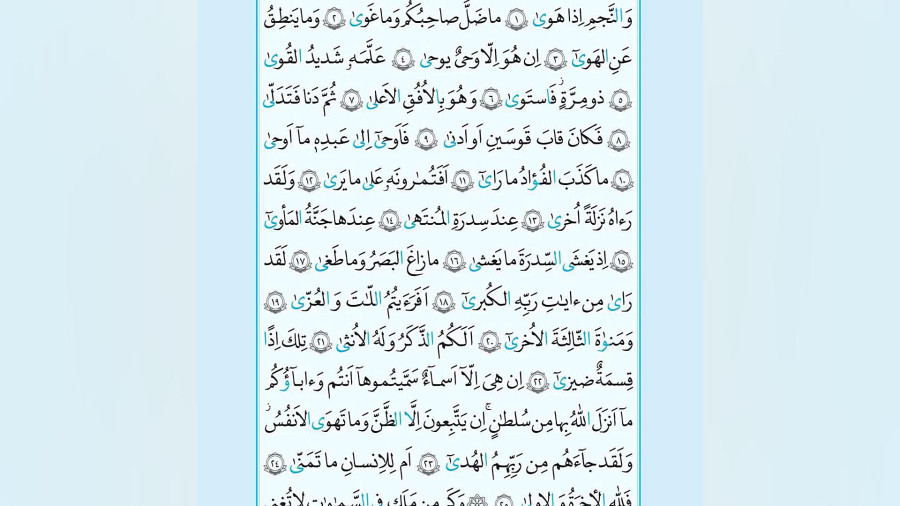 وَالنَّجمِ اِذا هَوىٰ ﴿١﴾ ما ضَلَّ صاحِبُكُم وَما غَوىٰ ﴿٢﴾ وَما يَنطِقُ
عَنِ الهَوىٰٓ ﴿٣﴾ اِن هُوَ اِلّا وَحىٌ يوحىٰ ﴿٤﴾ عَلَّمَهٗ شَديدُ القُوىٰ
﴿٥﴾ ذو مِرَّةٍۙ فَاستَوىٰ ﴿٦﴾ وَهُوَ بِالاُفُقِ الاَعلىٰ ﴿٧﴾ ثُمَّ دَنا فَتَدَلّىٰ
﴿٨﴾ فَكانَ قابَ قَوسَينِ اَو اَدنىٰ ﴿٩﴾ فَاَوحىٰٓ اِلىٰ عَبدِهٖ مآ اَوحىٰ
﴿١٠﴾ ما كَذَبَ الفُؤادُ ما رَاىٰٓ ﴿١١﴾ اَفَتُمٰرونَهٗ عَلىٰ ما يَرىٰ ﴿١٢﴾ وَلَقَد
رَءاهُ نَزلَةً اُخرىٰ ﴿١٣﴾ عِندَ سِدرَةِ المُنتَهىٰ ﴿١٤﴾ عِندَها جَنَّةُ المَأوىٰٓ
﴿١٥﴾ اِذ يَغشَى السِّدرَةَ ما يَغشىٰ ﴿١٦﴾ ما زاغَ البَصَرُ وَما طَغىٰ ﴿١٧﴾ لَقَد
رَاىٰ مِن ءايٰتِ رَبِّهِ الكُبرىٰٓ ﴿١٨﴾ اَفَرَءَيتُمُ اللّٰتَ وَ العُزّىٰ ﴿١٩﴾
وَمَنوٰةَ الثّالِثَةَ الاُخرىٰٓ ﴿٢٠﴾ اَلَكُمُ الذَّكَرُ وَلَهُ الاُنثىٰ ﴿٢١﴾ تِلكَ اِذًا
قِسمَةٌ ضيزىٰٓ ﴿٢٢﴾ اِن هِىَ اِلّآ اَسمآءٌ سَمَّيتُموهآ اَنتُم وَءابآؤُكُم
مآ اَنزَلَ اللّٰهُ بِها مِن سُلطٰنٍۚ اِن يَتَّبِعونَ اِلَّا الظَّنَّ وَما تَهوَى الاَنفُسُۙ
وَلَقَد جآءَهُم مِن رَبِّهِمُ الهُدىٰٓ ﴿٢٣﴾ اَم لِلاِنسانِ ما تَمَنّىٰ ﴿٢٤﴾
فَلِلّٰهِ الأخِرَةُ وَ الاولىٰ ﴿٢٥﴾ وَكَم مِن مَلَكٍ فِى السَّمٰوٰتِ لا تُغنى